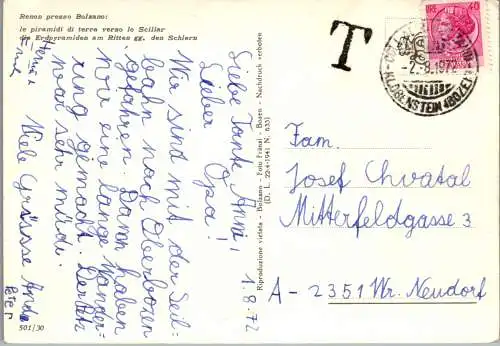 Renon presso Bolzano:
le piramidi di terra verso lo Sciliar
die Erdpyramiden am Ritten gg. den Schlern
1.8.72
Liebe Tante Anni,
Lieber Opa!
Wir sind mit der Seil=
bahn nach Oberbozen
gefahren. Dann haben
wir eine lange Wander=
rung gemacht. Der
war sehr müde.
Viele Grüsse
Peter
501/30
Riproduzione vietata - Bolzano - Foto Fränzl - Bozen - Nachdruck verboten
(D. L. 22-4-1941 N. 633)
T
LIRE 40
-2.-8.1972
KLOBENSTEIN (BOZEN)
Fam.
Josef Chvatal
Mitterfeldgasse 3
A - 2351 Wr. Neudorf